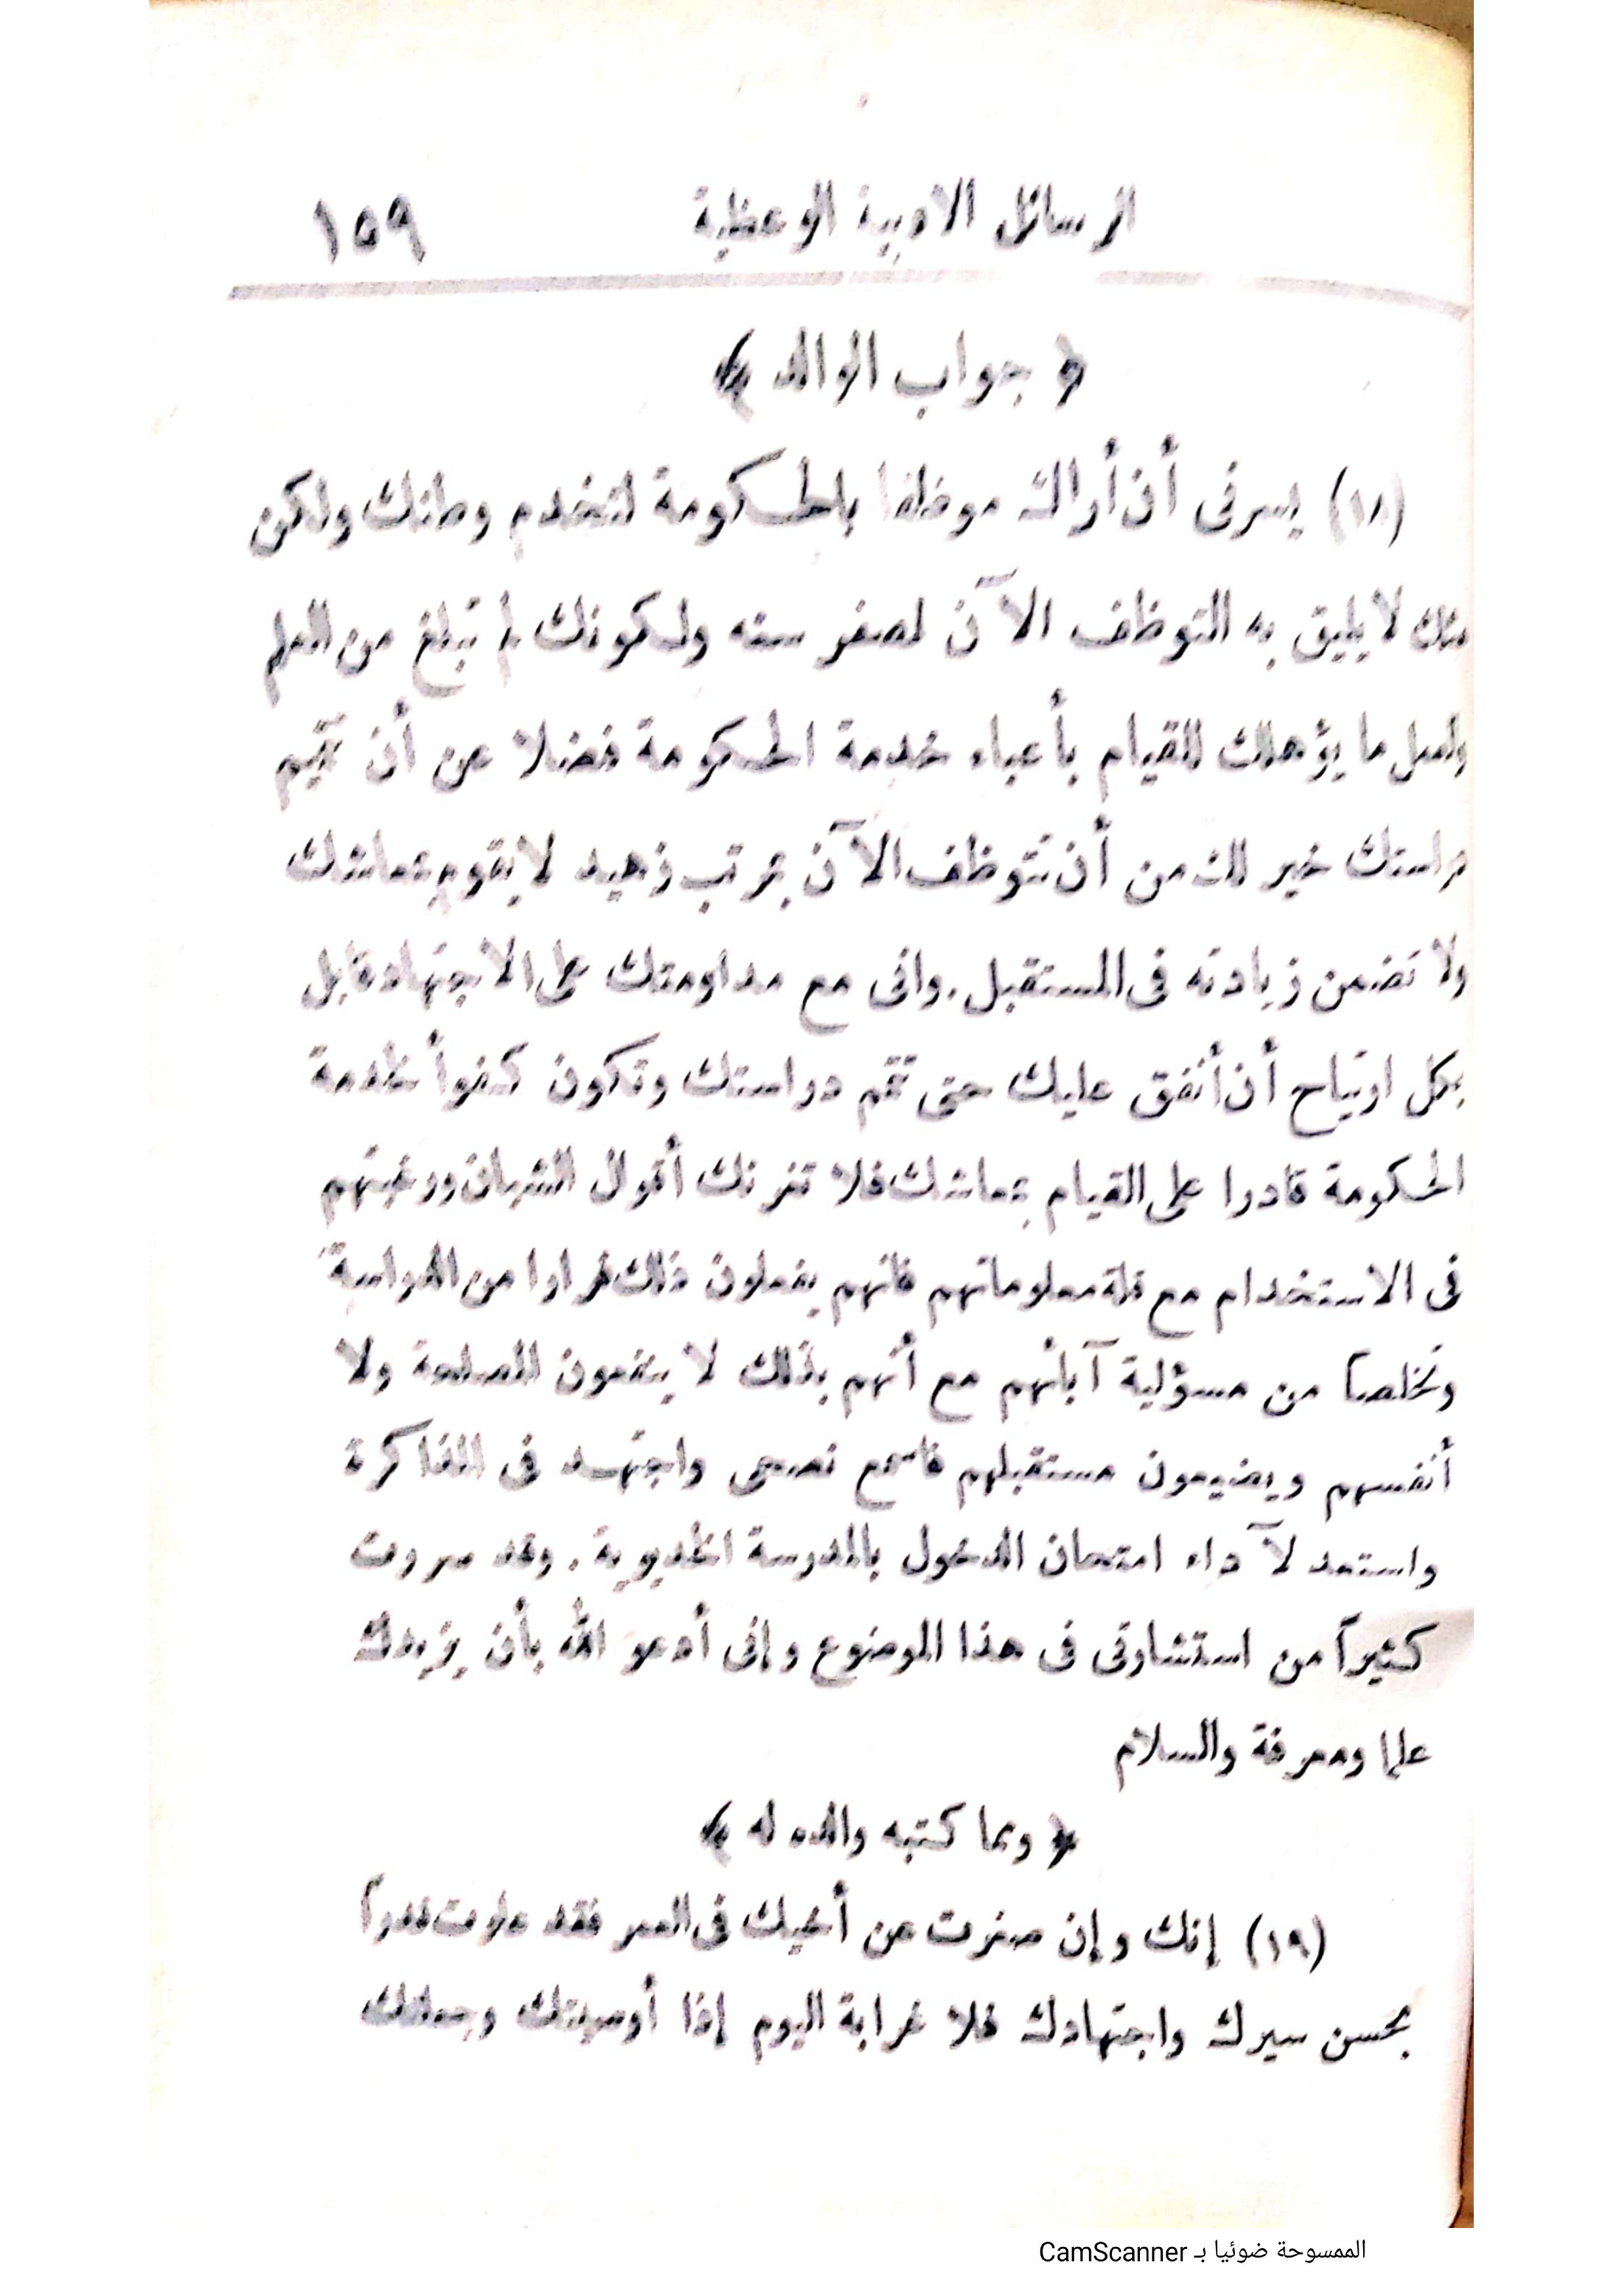 الرسائل الادبية الوعظية ١٥٩
﴿ جواب الوالد ﴾
(١٨) يسرنى أن أراك موظفا بالحكومة لتخدم وطنك ولكن
مثلك لا يليق به التوظف الآن لصغر سنه ولكونك لم تبلغ من العلم
والعمل ما يؤهلك للقيام بأعباء خدمة الحكومة فضلا عن أن تتميم
دراستك خير لك من أن تتوظف الآن بمرتب زهيد لا يقوم بمعاشك
ولا تضمن زيادته فى المستقبل. وانى مع مداومتك على الاجتهاد قابل
بكل ارتياح أن أنفق عليك حتى تتم دراستك وتكون كفوأ لخدمة
الحكومة قادرا على القيام بمعاشك فلا تغرنك أقوال الشبان ورغبتهم
فى الاستخدام مع قلة معلوماتهم فانهم يفعلون ذلك فرارا من الدراسة
وتخلصا من مسؤلية آبائهم مع أنهم بذلك لا ينفعون المصلحة ولا
أنفسهم ويضيعون مستقبلهم فاسمع نصحى واجتهد فى المذاكرة
واستعد لآداء امتحان الدخول بالمدرسة الخديوية. وقد سررت
كثيرآ من استشارتى فى هذا الموضوع وإنى أدعو الله بأن يزيدك
علما ومعرفة والسلام
﴿ ومما كتبه والده له ﴾
(١٩) إنك وإن صغرت عن أخيك فى العمر فقد علوت قدرآ
بحسن سيرك واجتهادك فلا غرابة اليوم إذا أوصيتك وجعلتك
الممسوحة ضوئيا بـ CamScanner